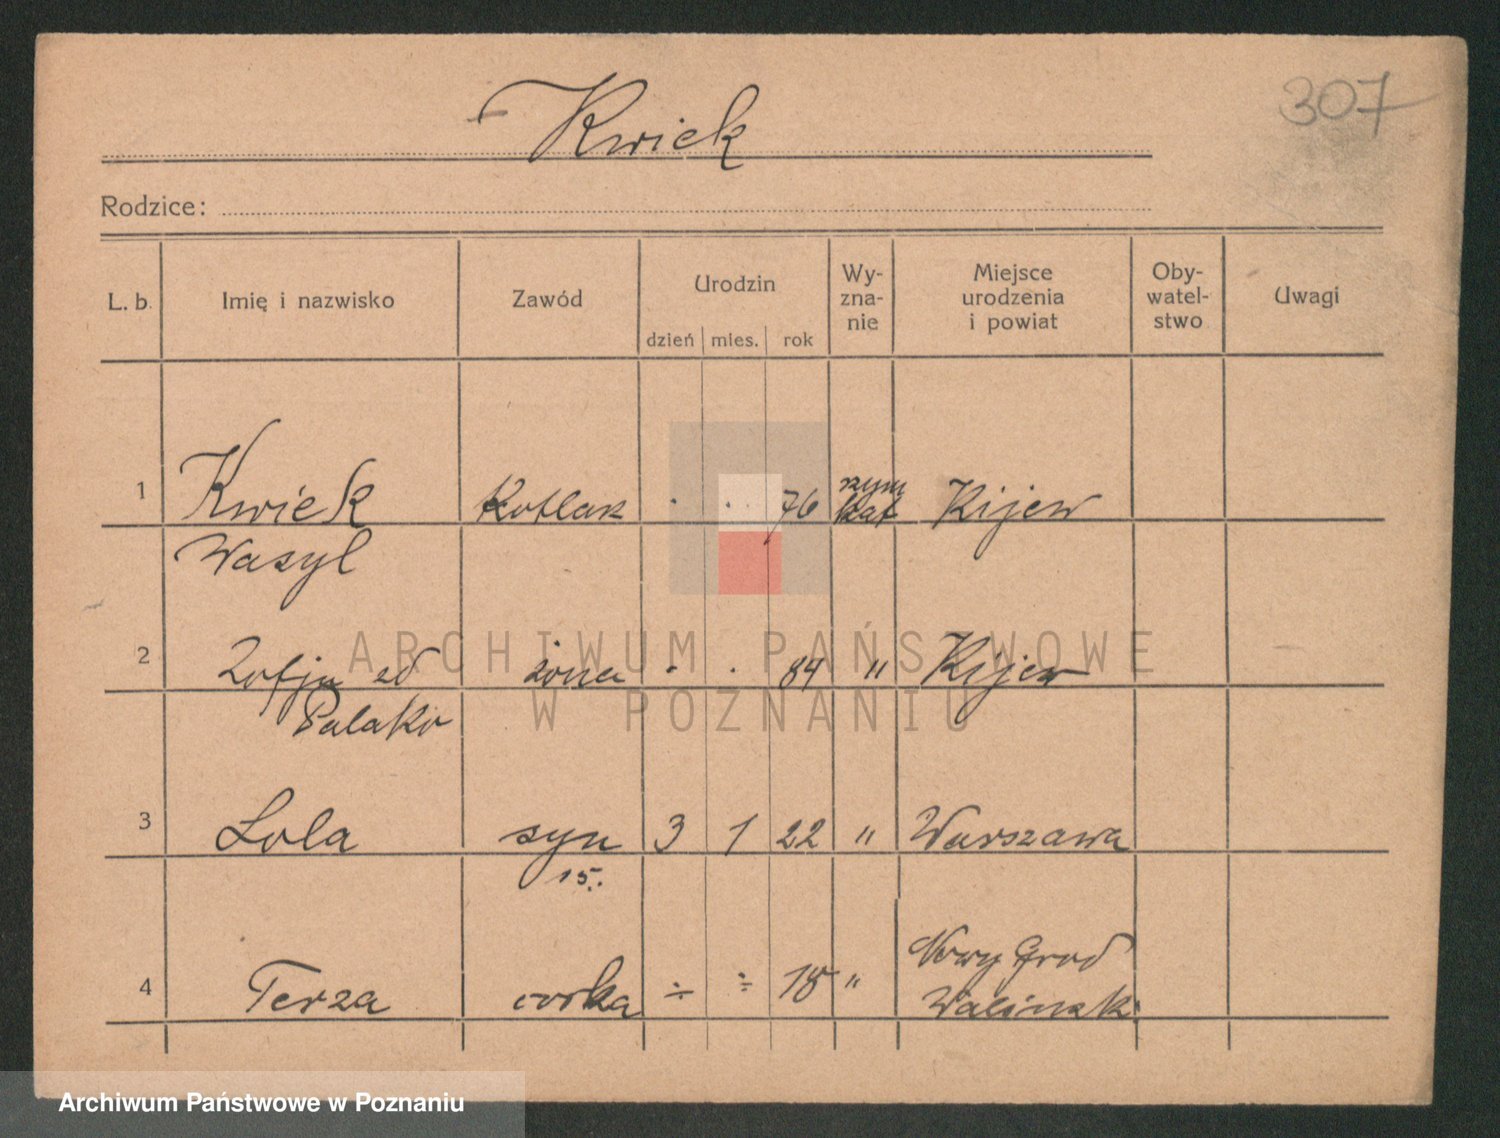 Kwiek
307
Rodzice:
L. b. Imię i nazwisko Zawód Urodzin Wy-zna-nie Miejsce urodzenia i powiat Oby-watel-stwo Uwagi
dzień mies. rok
1 Kwiek Kotlarz . . 76 rzym kat Kijew
Wasyl
2 Zofja zd żona . . 84 " Kijew
Palako
3 Lola syn 3 1 22 " Warszawa
15.
4 Terza corka ÷ ÷ 18 " Nowy Grod
ARCHIWUM PAŃSTWOWE
W POZNANIU
Archiwum Państwowe w Poznaniu